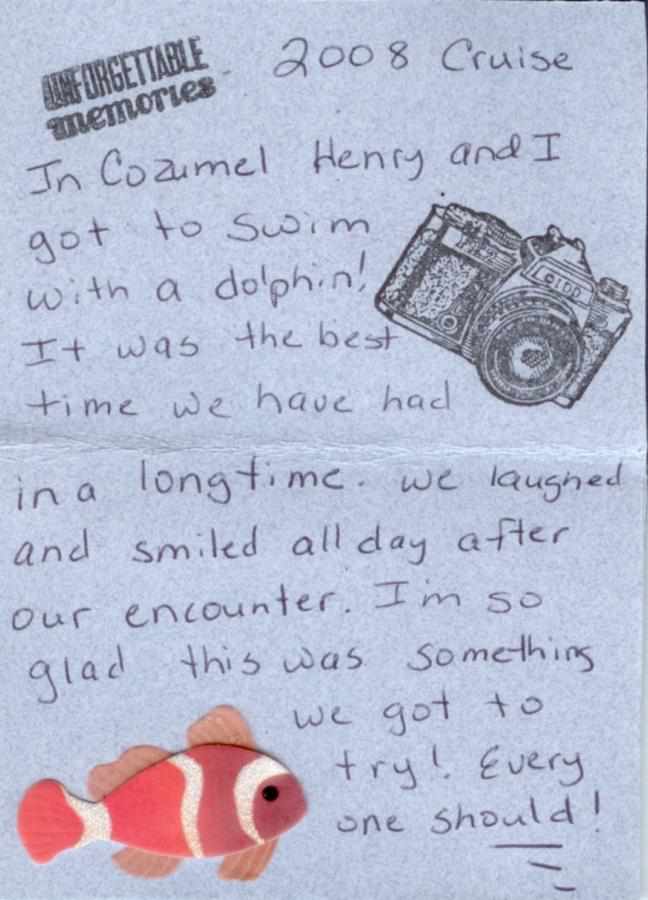 UNFORGETTABLE
memories
2008 Cruise
In Cozumel Henry and I
got to swim
with a dolphin!
It was the best
time we have had
in a longtime. we laughed
and smiled all day after
our encounter. I'm so
glad this was something
we got to
try! Every
one should!